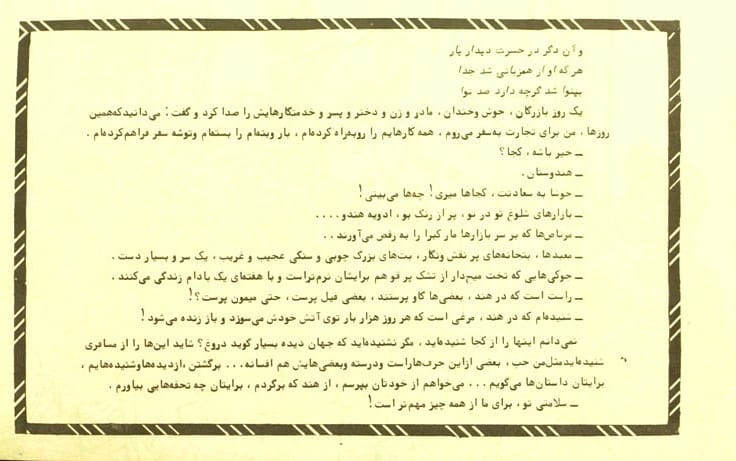 و آن دگر در حسرت دیدار یار
هر که او از همزبانی شد جدا
بینوا شد گرچه دارد صد نوا
یک روز بازرگان ، خوش وخندان ، مادر و زن و دختر و پسر و خدمتکارهایش را صدا کرد و گفت : میدانیدکه‌همین
روزها ، من برای تجارت به‌سفر می‌روم ، همه کارهایم را روبه‌راه کرده‌ام ، بار وبنه‌ام را بسته‌ام وتوشه سفر فراهم‌کرده‌ام .
ــ خیر باشه ، کجا ؟
ــ هندوستان .
ــ خوشا به سعادتت ، کجاها میری ! چه‌ها می‌بینی !
ــ بازارهای شلوغ تو در تو ، پر از رنگ بو ، ادویه هندو . . . .
ــ مرتاض‌ها که بر سر بازارها مار کبرا را به رقص می‌آورند . .
ــ معبدها ، بتخانه‌های پر نقش ونگار ، بت‌های بزرگ چوبی و سنگی عجیب و غریب ، یک سر و بسیار دست .
ــ جوکی‌هایی که تخت میخ‌دار از تشک پر قو هم برایشان نرم‌تراست و با هفته‌ای یک بادام زندگی می‌کنند .
ــ راست است که در هند ، بعضی‌ها گاو پرستند ، بعضی فیل پرست ، حتی میمون پرست ؟ !
ــ شنیده‌ام که در هند ، مرغی است که هر روز هزار بار توی آتش خودش می‌سوزد و باز زنده می‌شود !
نمی‌دانم اینها را از کجا شنیده‌اید ، مگر نشنیده‌اید که جهان دیده بسیار گوید دروغ ؟ شاید این‌ها را از مسافری
شنیده‌ایدمثل‌من خب ، بعضی ازاین حرف‌هاراست ودرسته وبعضی‌هایش هم افسانه . . . برگشتن ،ازدیده‌هاوشنیده‌هایم ،
برایتان داستان‌ها می‌گویم . . . می‌خواهم از خودتان بپرسم ، از هند که برگردم ، برایتان چه تحفه‌هایی بیاورم .
ــ سلامتی تو ، برای ما از همه چیز مهم‌تر است !